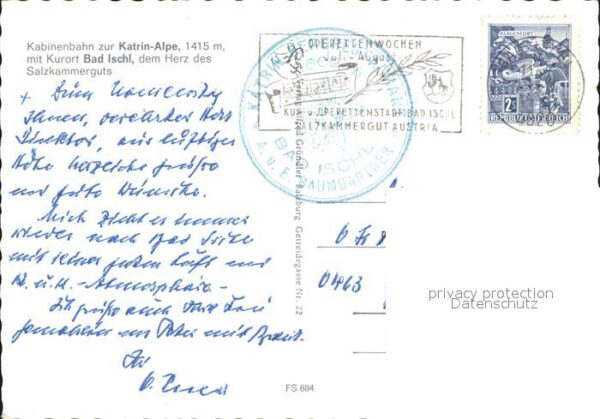 Kabinenbahn zur Katrin-Alpe, 1415 m,
mit Kurort Bad Ischl, dem Herz des
Salzkammerguts
OPERETTENWOCHEN
Juli - August
KUR- u. OPERETTENSTADT BAD ISCHL
SALZKAMMERGUT AUSTRIA
BAD ISCHL
A. u. E. BAUMGARTNER
2 S
REPUBLIK ÖSTERREICH
+ Zum
Ihnen, verehrter Herr
Direktor, aus luftiger
Höhe herzliche Grüße
und gute Wünsche.
Mich zieht es immer
wieder nach Bad Ischl
mit seiner guten Luft und
K. u. K. - Atmosphäre -
Ich grüße auch Ihre Frau
Gemahlin und Peter mit Braut.
Ihr
Gründler, Salzburg, Getreidegasse Nr. 22
0463
privacy protection
Datenschutz
FS 684